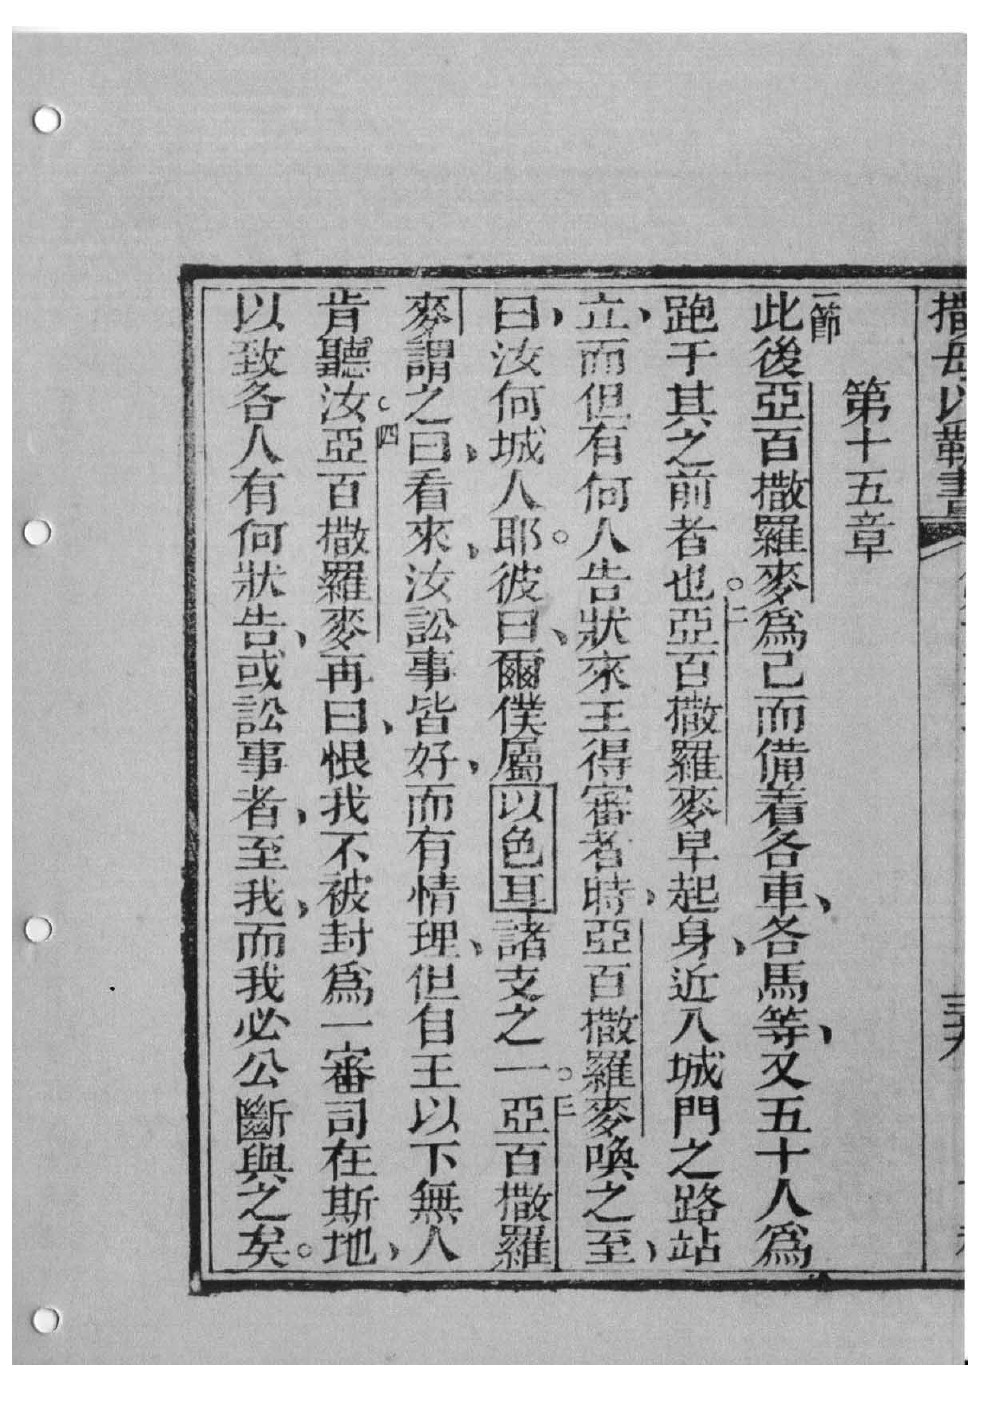 第十五章
一節此後亞百撒羅麥爲己而備着各車、各馬等、又五十人爲
跑于其之前者也。二亞百撒羅麥早起身、近入城門之路站
立、而但有何人告狀來王得審者時、亞百撒羅麥喚之至、
曰、汝何城人耶。彼曰、爾僕屬以色耳諸支之一。三亞百撒羅
麥謂之曰、看來、汝訟事皆好、而有情理、但自王以下無人
肯聽汝。四亞百撒羅麥再曰、恨我不被封爲一審司在斯地、
以致各人有何狀告、或訟事者、至我、而我必公斷與之矣。